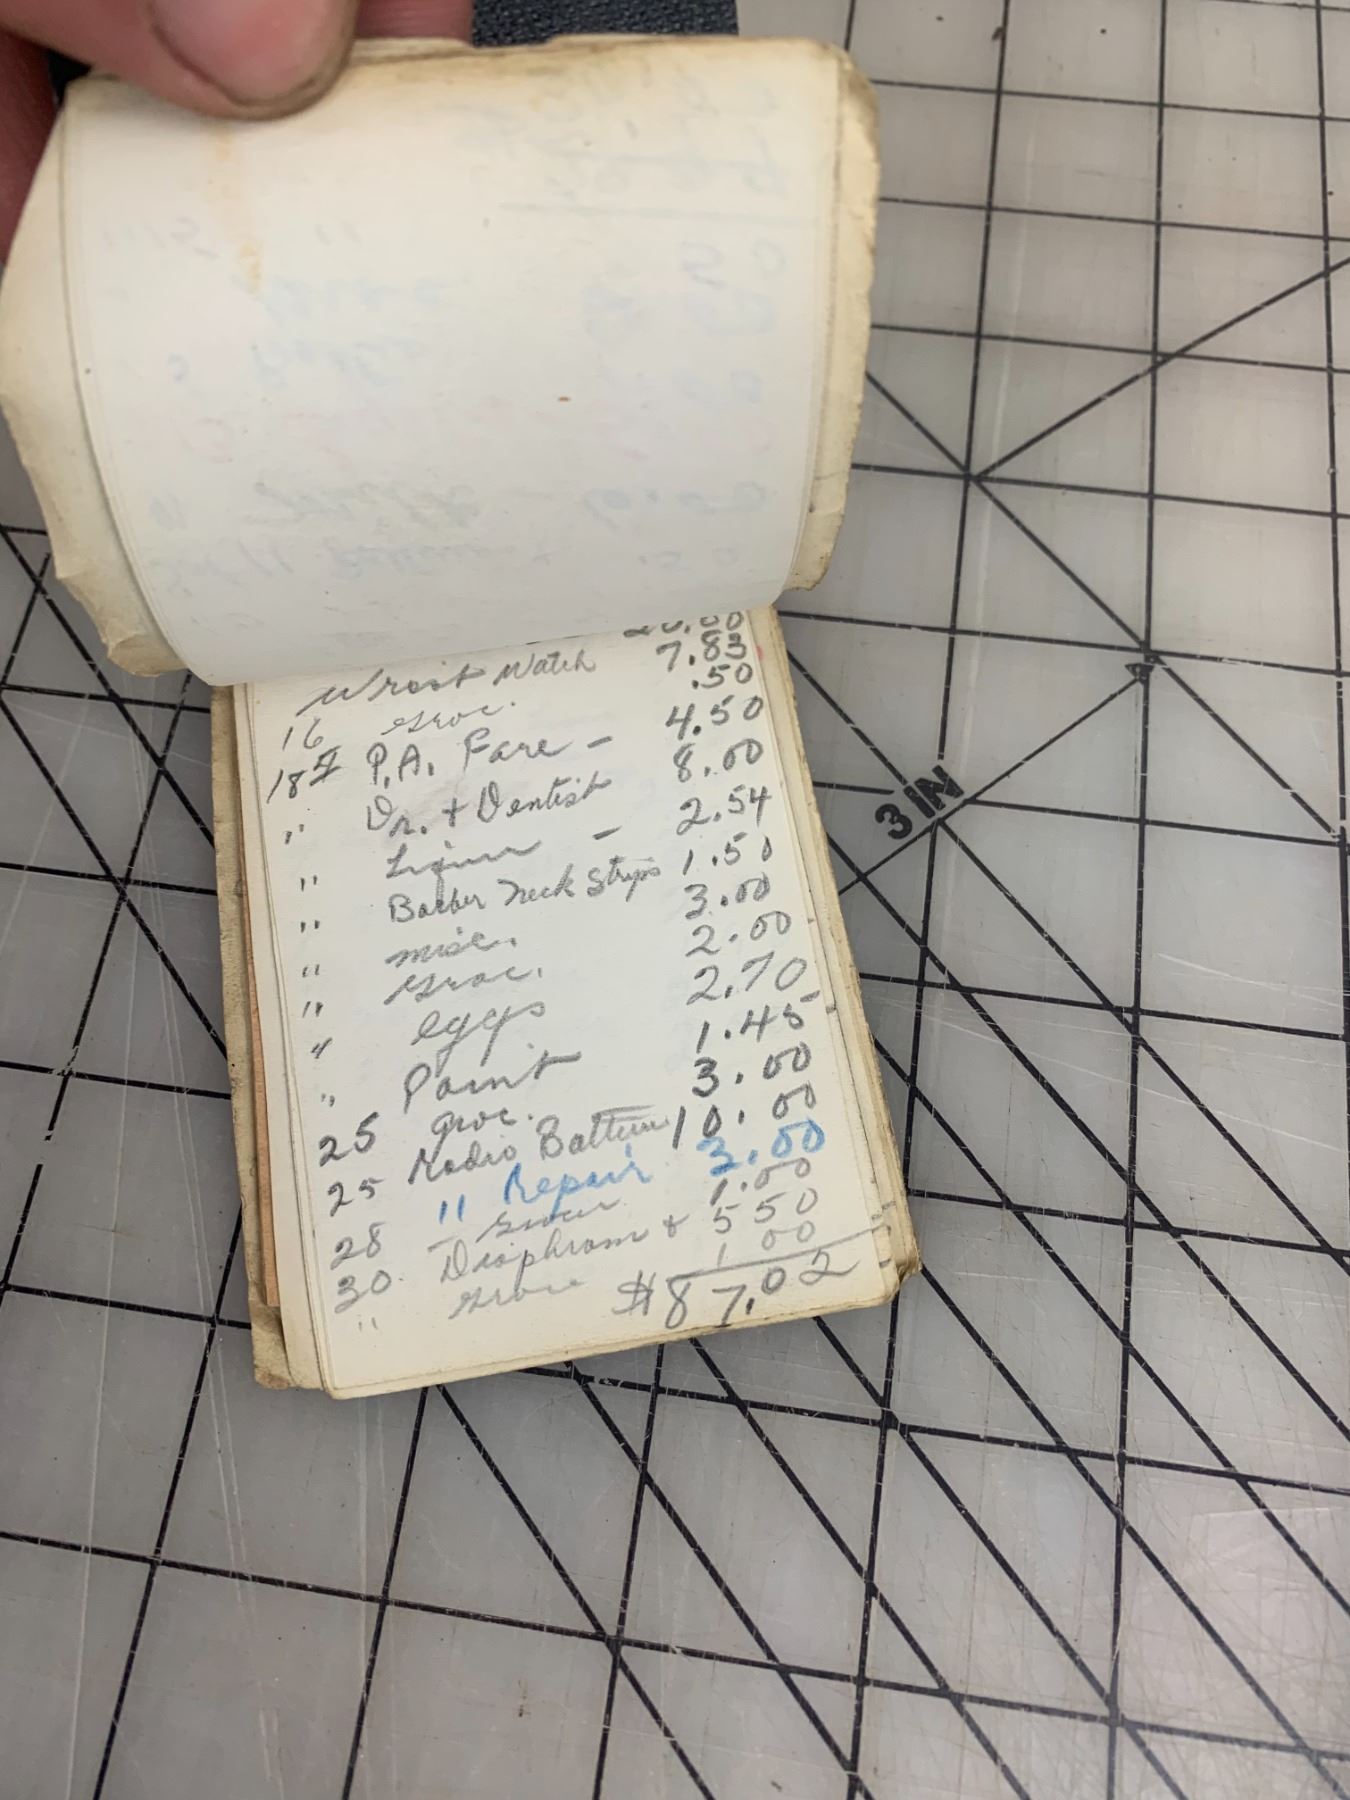 20.00
Wrist Watch 7.83
16 Groc. .50
18 P.A. Fare - 4.50
" Dr. + Dentist 8.00
" Liquor - 2.54
" Barber Neck Strips 1.50
" misc. 3.00
" Groc. 2.00
" eggs 2.70
" Paint 1.45
25 groc. 3.00
25 Radio 10.00
" Repair 3.00
28 - 1.00
30 Diaphram + 5 50
" 1 00
$87.02
3 IN